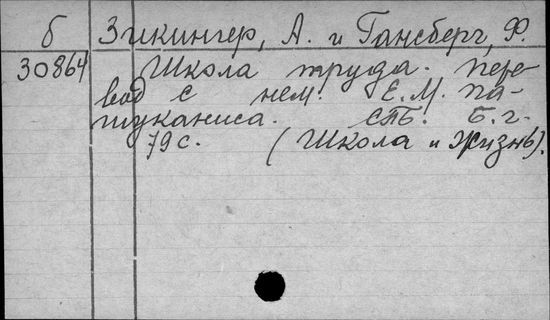 б Зикингер, А. и Гансберг, Ф.
30864 Школа труда. Пере-
вод с нем. Е.М. Па-
шуканиса. СПБ. Б.г.
79 с. (Школа и жизнь).